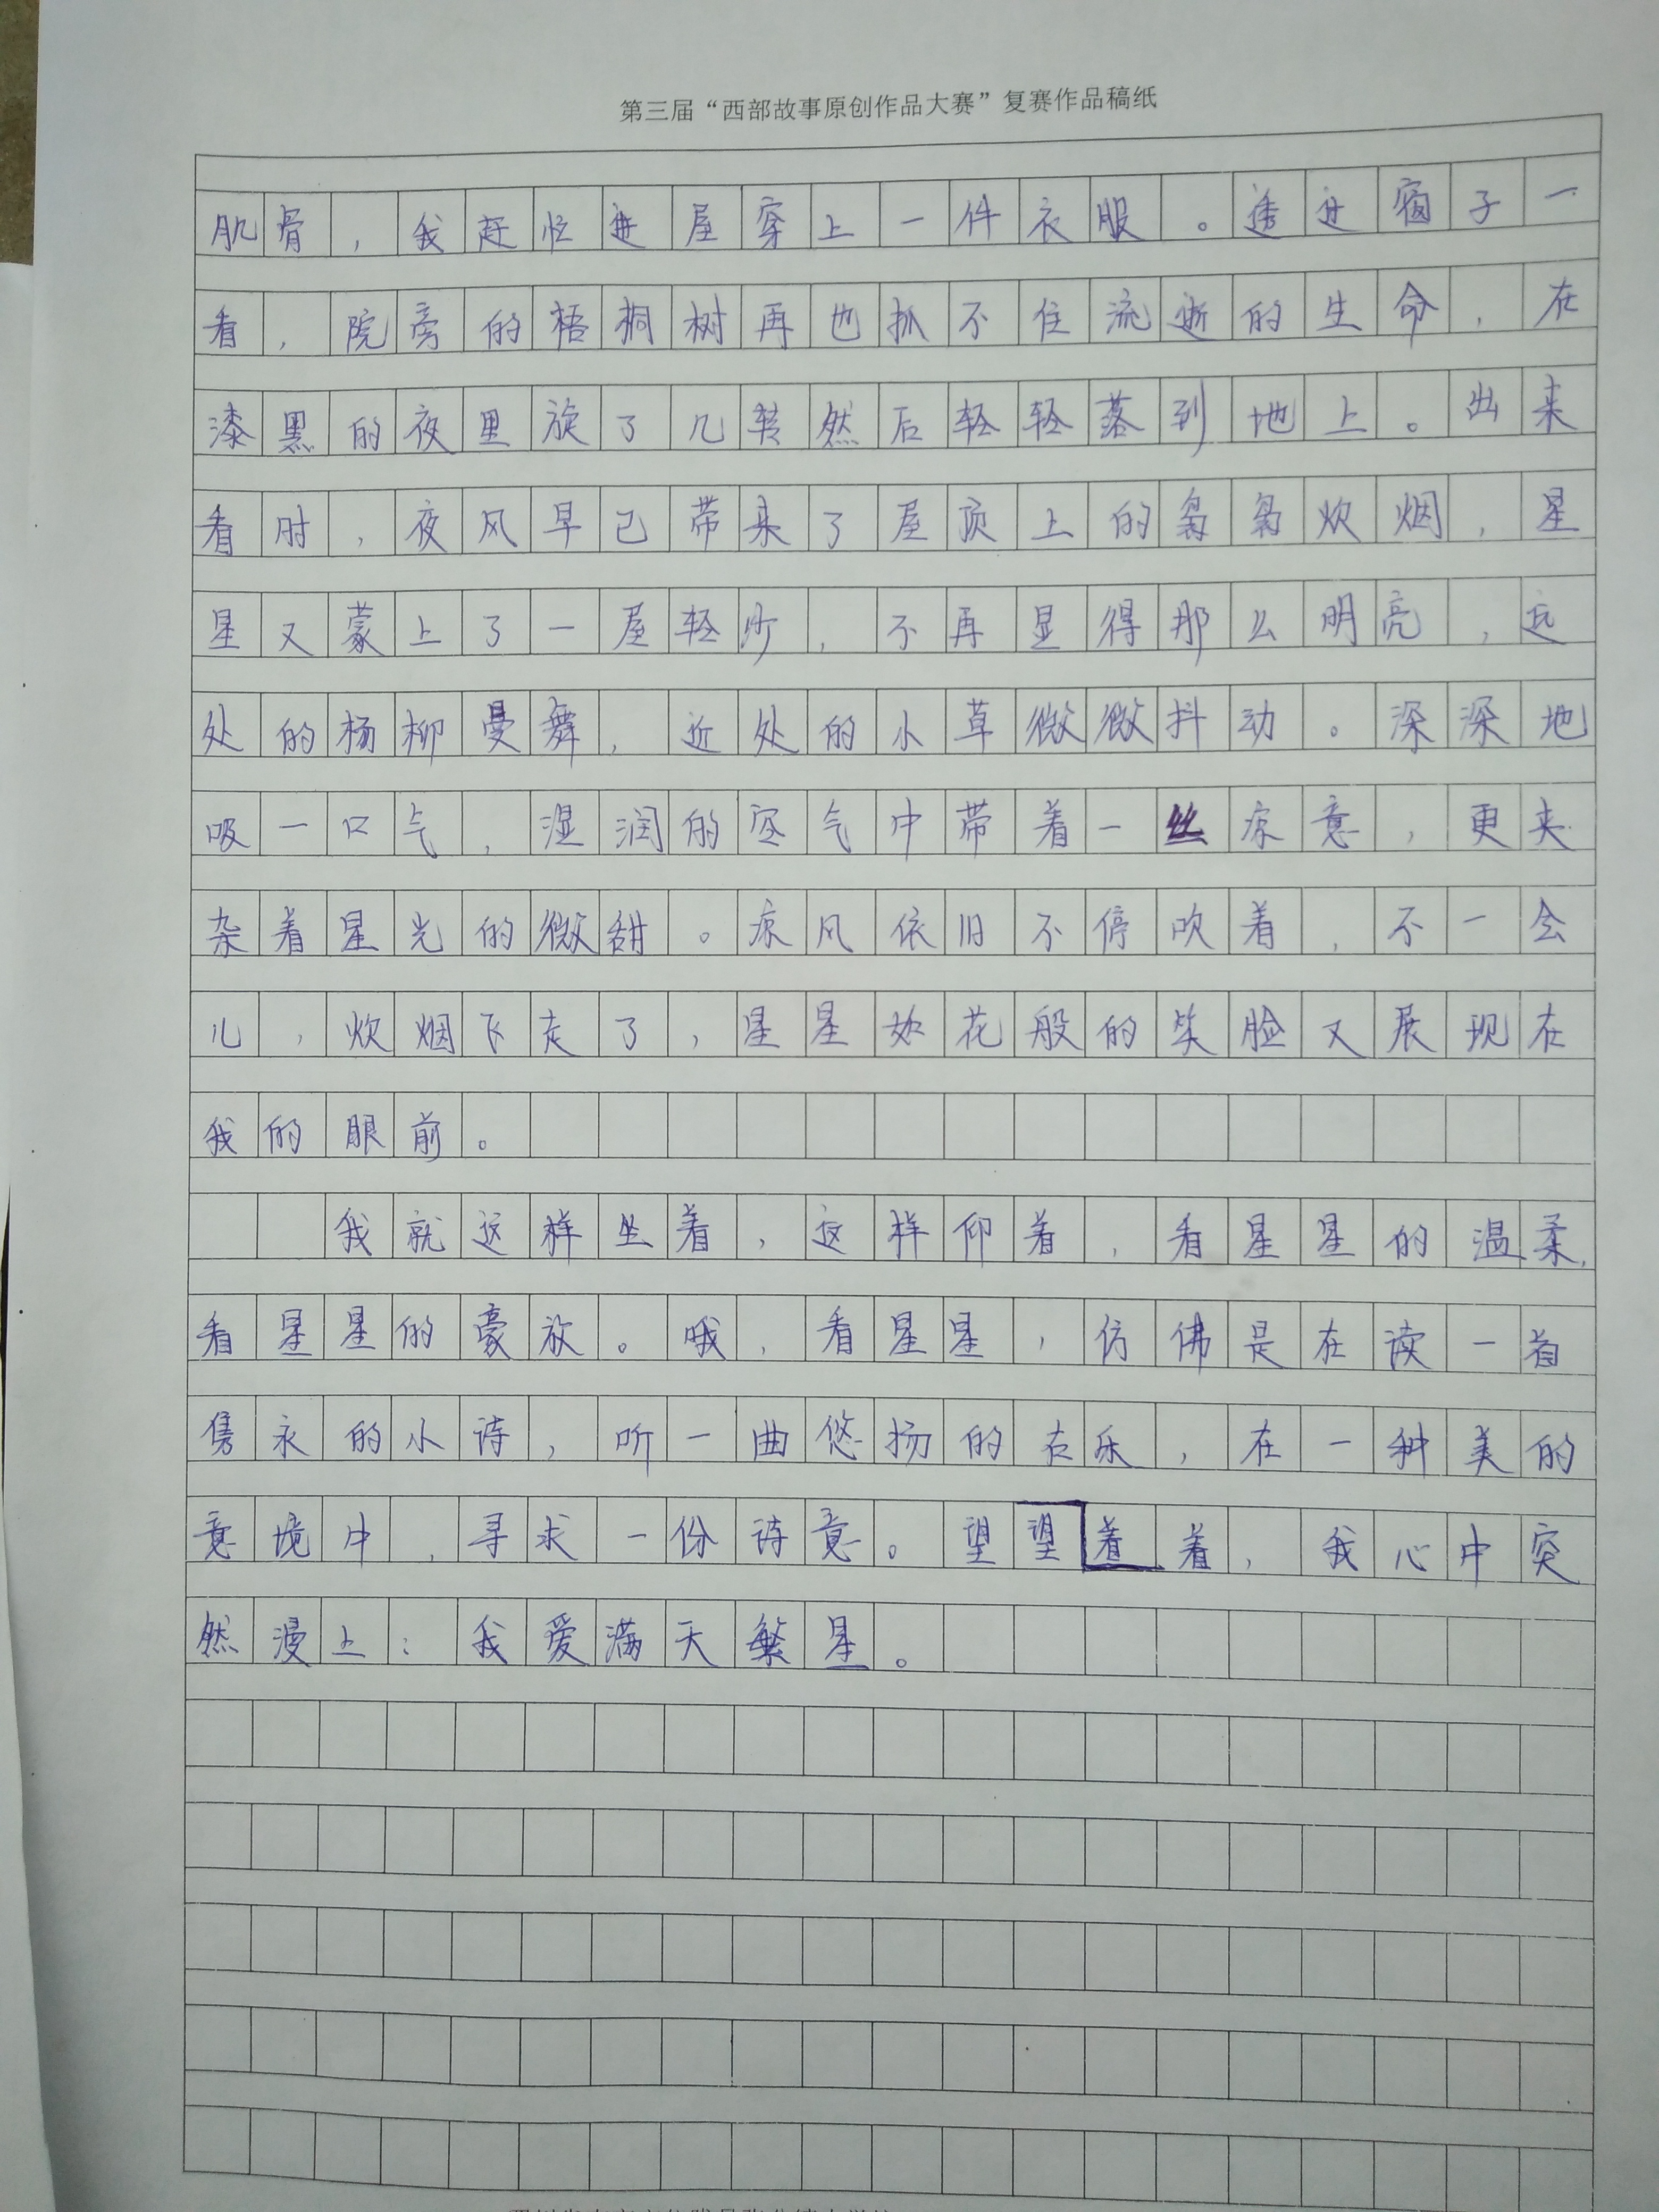 第三届“西部故事原创作品大赛”复赛作品稿纸
肌骨，我赶忙进屋穿上一件衣服。透过窗子一
看，院旁的梧桐树再也抓不住流逝的生命，在
漆黑的夜里旋了几转然后轻轻落到地上。出来
看时，夜风早已带来了屋顶上的袅袅炊烟，星
星又蒙上了一层轻纱，不再显得那么明亮，远
处的杨柳曼舞，近处的小草微微抖动。深深地
吸一口气，湿润的空气中带着一丝凉意，更夹
杂着星光的微甜。凉风依旧不停吹着，不一会
儿，炊烟飞走了，星星如花般的笑脸又展现在
我的眼前。
我就这样坐着，这样仰着，看星星的温柔，
看星星的豪放。哦，看星星，仿佛是在读一首
隽永的小诗，听一曲悠扬的音乐，在一种美的
意境中，寻求一份诗意。望望着着，我心中突
然漫上：我爱满天繁星。